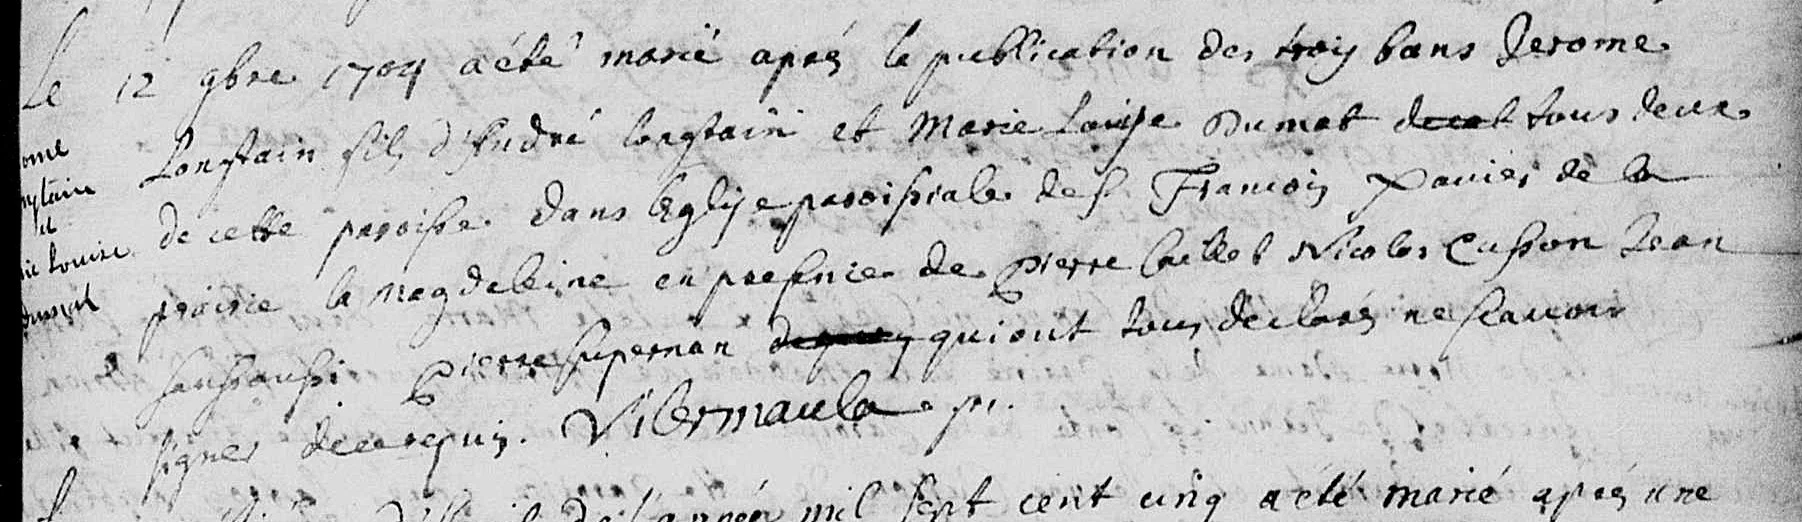 Le 12 9bre 1704 a été marié aprés la publication des troys bans Jerome
Longtain fils d'André longtain et Marie Louyse Dumat tous deux
de cette paroisse dans l'Eglyse paroissiale de S. Francois Xavier de la
prairie la magdeleine en presence de Pierre Caillet Nicolas Cusson Jean
Pierre Supernan qui ont tous declarés ne scavoir
signer de ce requis. Vilermaula p.
ome
ngtain
et
ie Louise
dumat
mil sept cent cinq a été marié aprés une